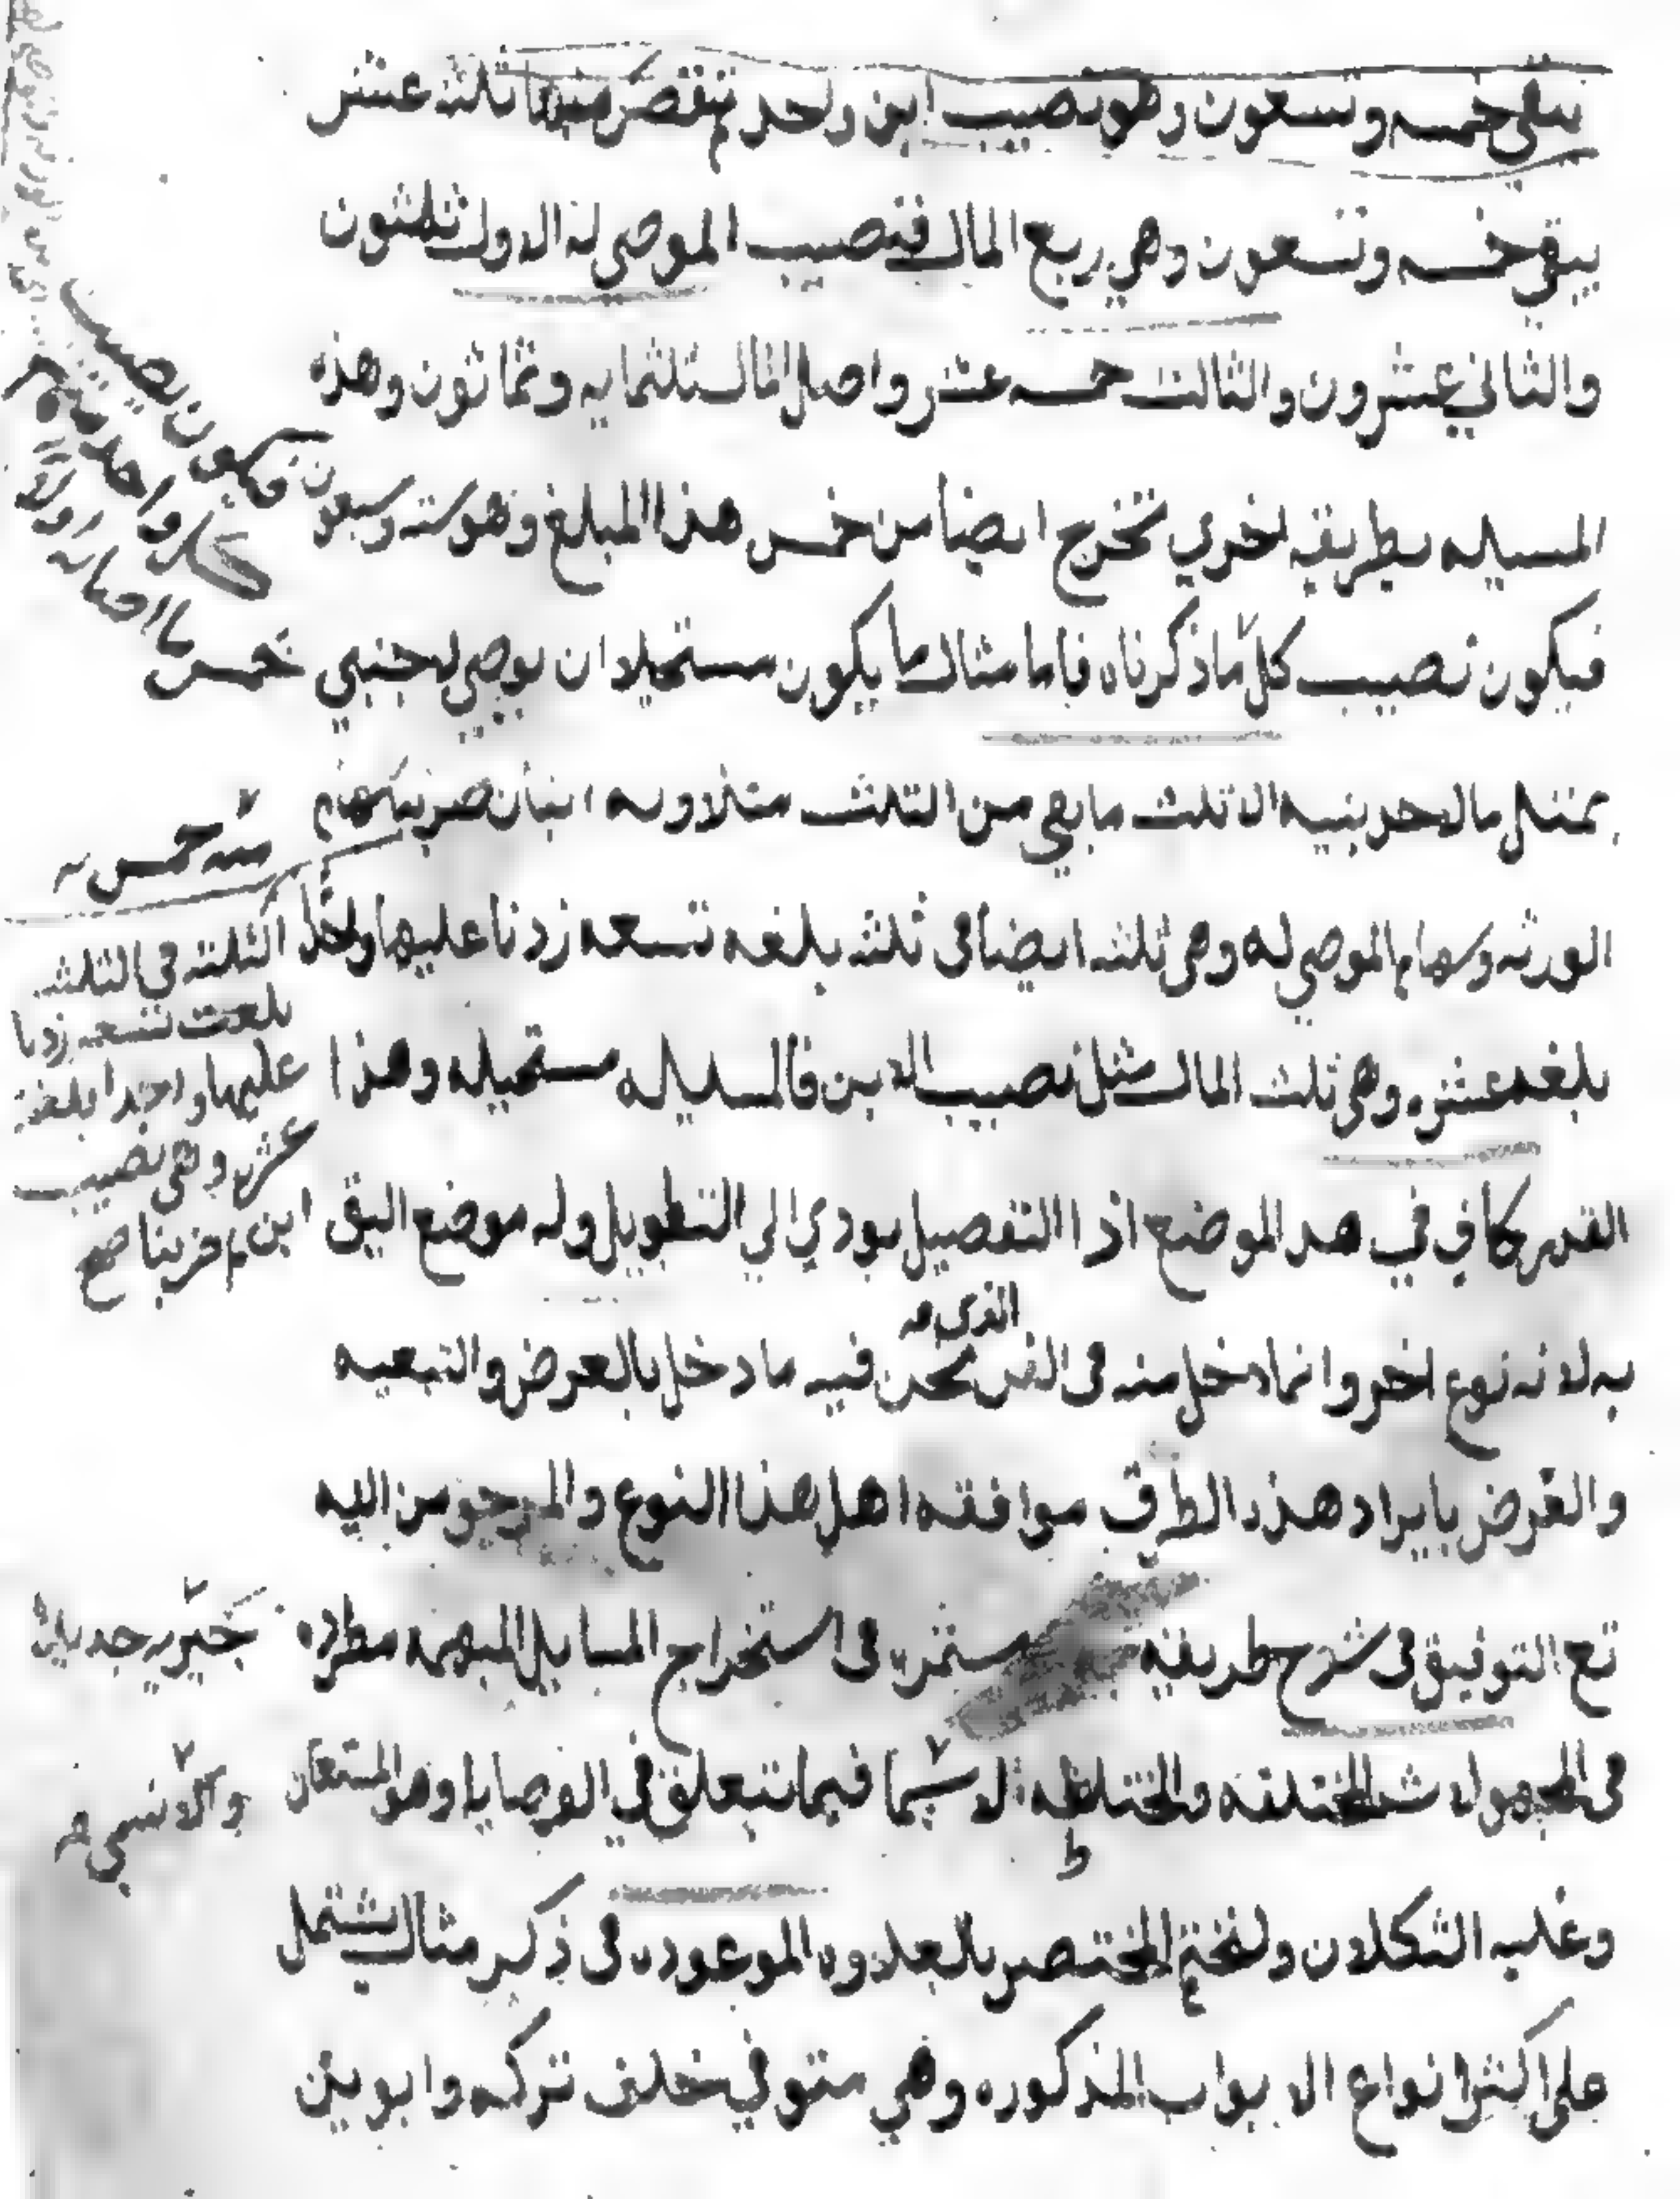 يبقى خمسه وتسعون وهو نصيب ابن واحد ثم تنقص منها ثلثه عشر
يبقى خمسه وتسعون وهي ربع المال فنصيب الموصى له الاول ثلثون
والثاني عشرون والثالث خمسه عشر واصل المال ثلثمايه وثمانون وهذه
المسيله بطريقه اخرى تخرج ايضا من خمس هذا المبلغ وهو سته وسبعون
فيكون نصيب كل ما ذكرناه فاما مثال ما يكون مستحيلا ان يوصي لاجنبي
بمثل ما لاحد بنيه الا ثلث ما بقي من الثلث مثلا وله ابنان ضربنا سهام
الورثه وسهام الموصى له وهي ثلثه ايضا في ثلثه بلغه تسعه زدنا عليها واحدا
بلغه عشره وهي ثلث المال مثل نصيب الابن فالمسيله مستحيله وهذا
القدر كافي في هذا الموضع اذ التفصيل يودي الى التطويل وله موضع اليق
به لانه نوع اخر وانما دخل منه في الفن الذي نحن فيه ما دخل بالعرض والتبعيه
والغرض بايراد هذه الطرق موافقه اهل هذا النوع والمرجو من اليه
تع التوفيق في شرح طريقه مستمره في استخراج المسايل المبهمه مطرده
في المجهولات المختلفه والمختلطه لا سيما فيما تتعلق في الوصايا وهو المستعان
وعليه التكلان ولنختم المختصر بالعلاوه الموعوده في ذكر مثال يشتمل
على اكثر انواع الابواب المذكوره وهي متوفي خلف تركه وابوين
فيكون نصيب
كل واحد منهم
خمس ما اصابه اولا
منه خمس
الثلثه في الثلثه
بلغت تسعه زدنا
عليها واحدا بلغة
عشره وهي نصيب
ابن ثم ضربنا صح